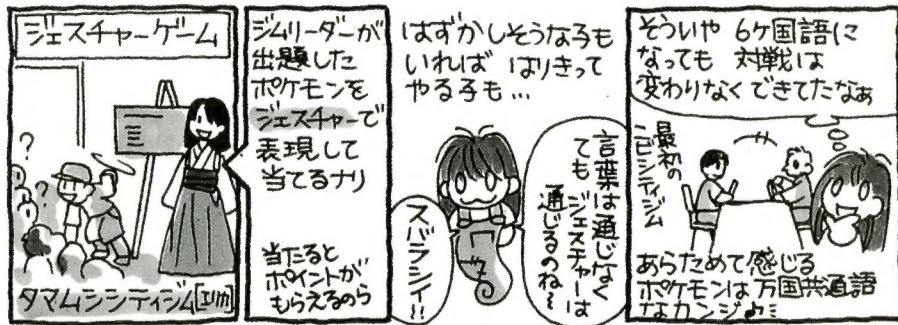 ジェスチャーゲーム
?
?
タマムシシティジム[エリカ]
ジムリーダーが
出題した
ポケモンを
ジェスチャーで
表現して
当てるナリ
当たると
ポイントが
もらえるのら
はずかしそうな子も
いれば はりきって
やる子も…
言葉は通じなく
ても ジェスチャーは
通じるのね〜
スバラシイ!!
そういや 6ヶ国語に
なっても 対戦は
変わりなくできてたなぁ
最初の
ニビシティジム
あらためて感じる
ポケモンは万国共通語
なカンジ♪